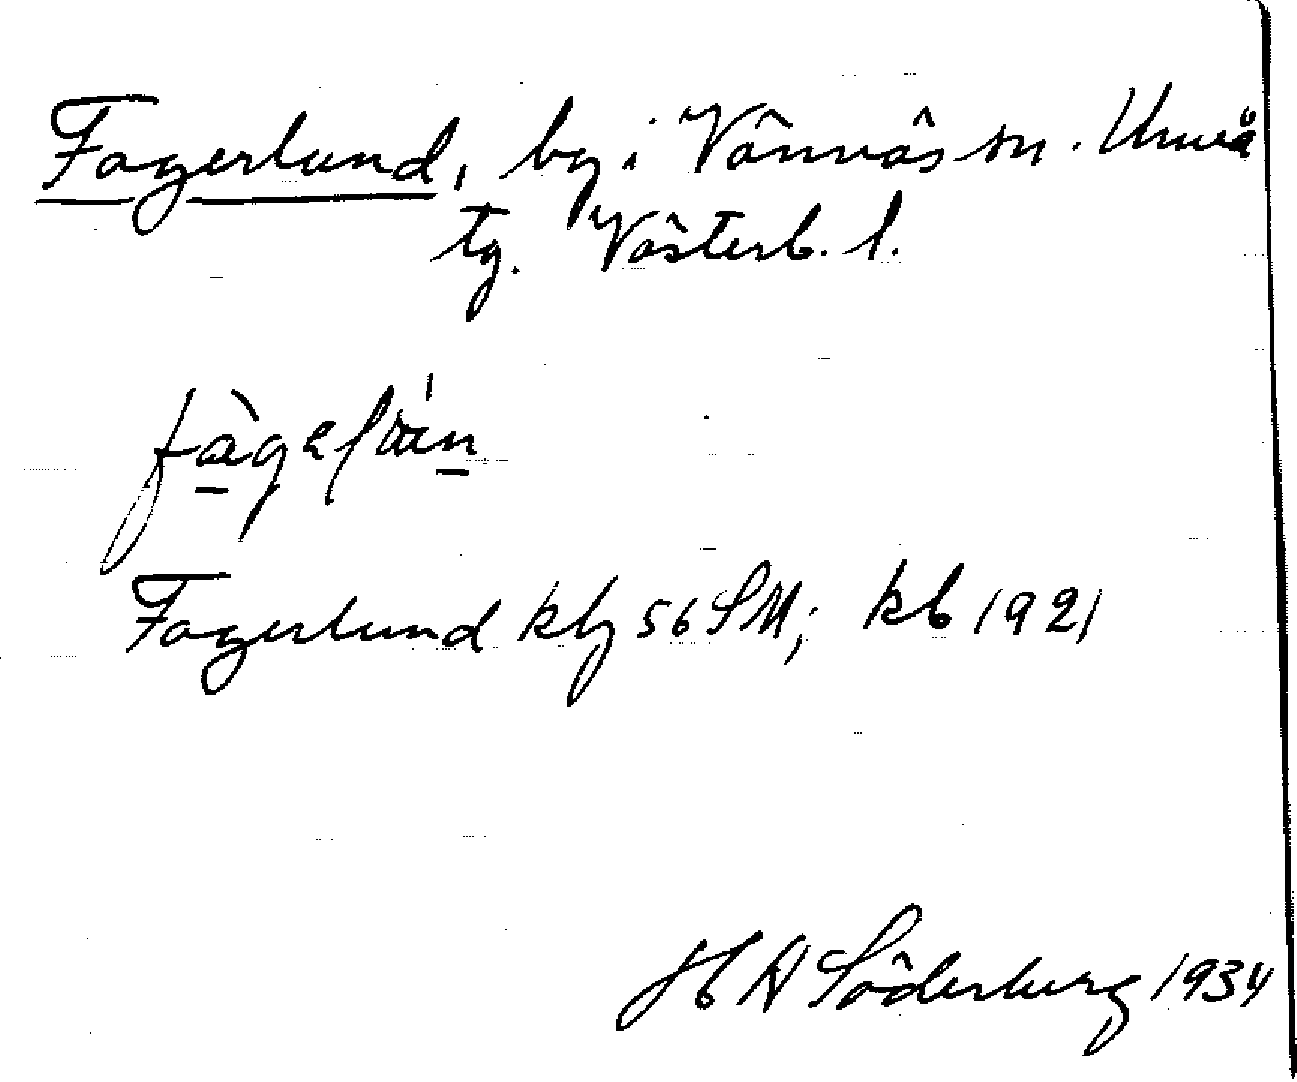 Fagerlund, by i Vännäs sn. Umeå
tg. Västerb. l.
Fagerlund kbg 56 SM; kb 1921
H A Söderberg 1934